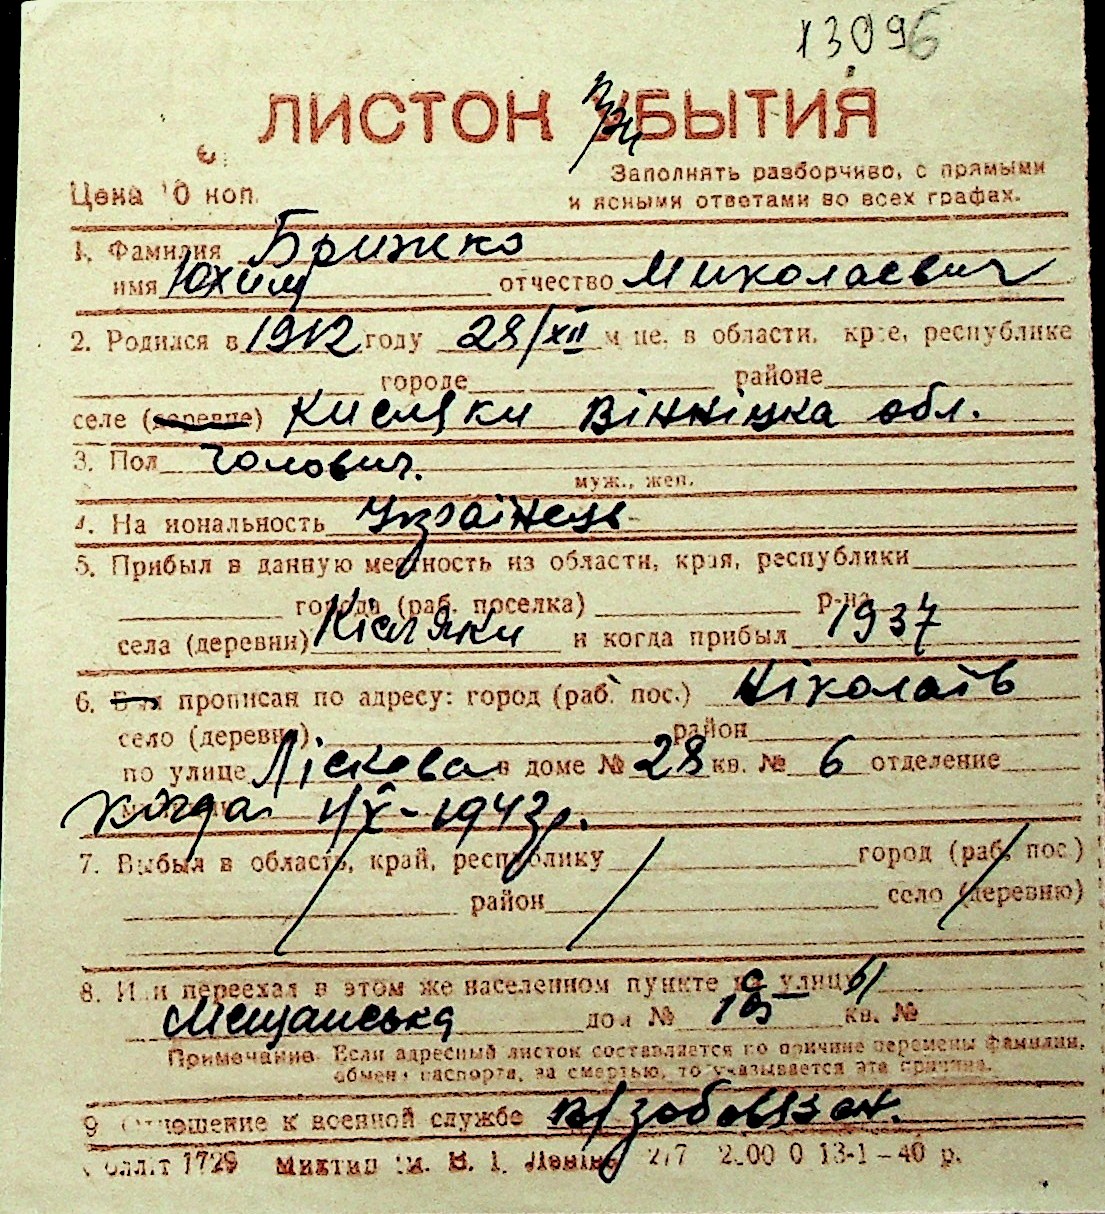 13096
ЛИСТОК УБЫТИЯ
Цена 10 коп.
Заполнять разборчиво, с прямыми
и ясными ответами во всех графах.
1. Фамилия Брижко
имя Юхим отчество Миколаевич
2. Родился в 1912 году 28/XII м-це, в области, крае, республике
городе районе
селе (деревне) Кисляки Вінніцка обл.
3. Пол чоловіч.
муж., жен.
4. Национальность Українець
5. Прибыл в данную местность из области, края, республики
города (раб. поселка) р-на
села (деревни) Кісляки и когда прибыл 1937
6. прописан по адресу: город (раб. пос.) Ніколаїв
село (деревня) район
по улице Ліскова в доме № 28 кв. № 6 отделение
когда 1/X-1943р.
7. Выбыл в область, край, республику город (раб. пос.)
район село (деревню)
8. Или переехал в этом же населенном пункте с улицы
Мещанська дом № кв. №
Примечание. Если адресный листок составляется по причине перемены фамилии,
обмена паспорта, за смертью, то указывается эта причина.
9. Отношение к военной службе в/зобовязан.
Облліт 1729 Миктип им. В. І. Леніна 217 2000 0 13-1-40 р.